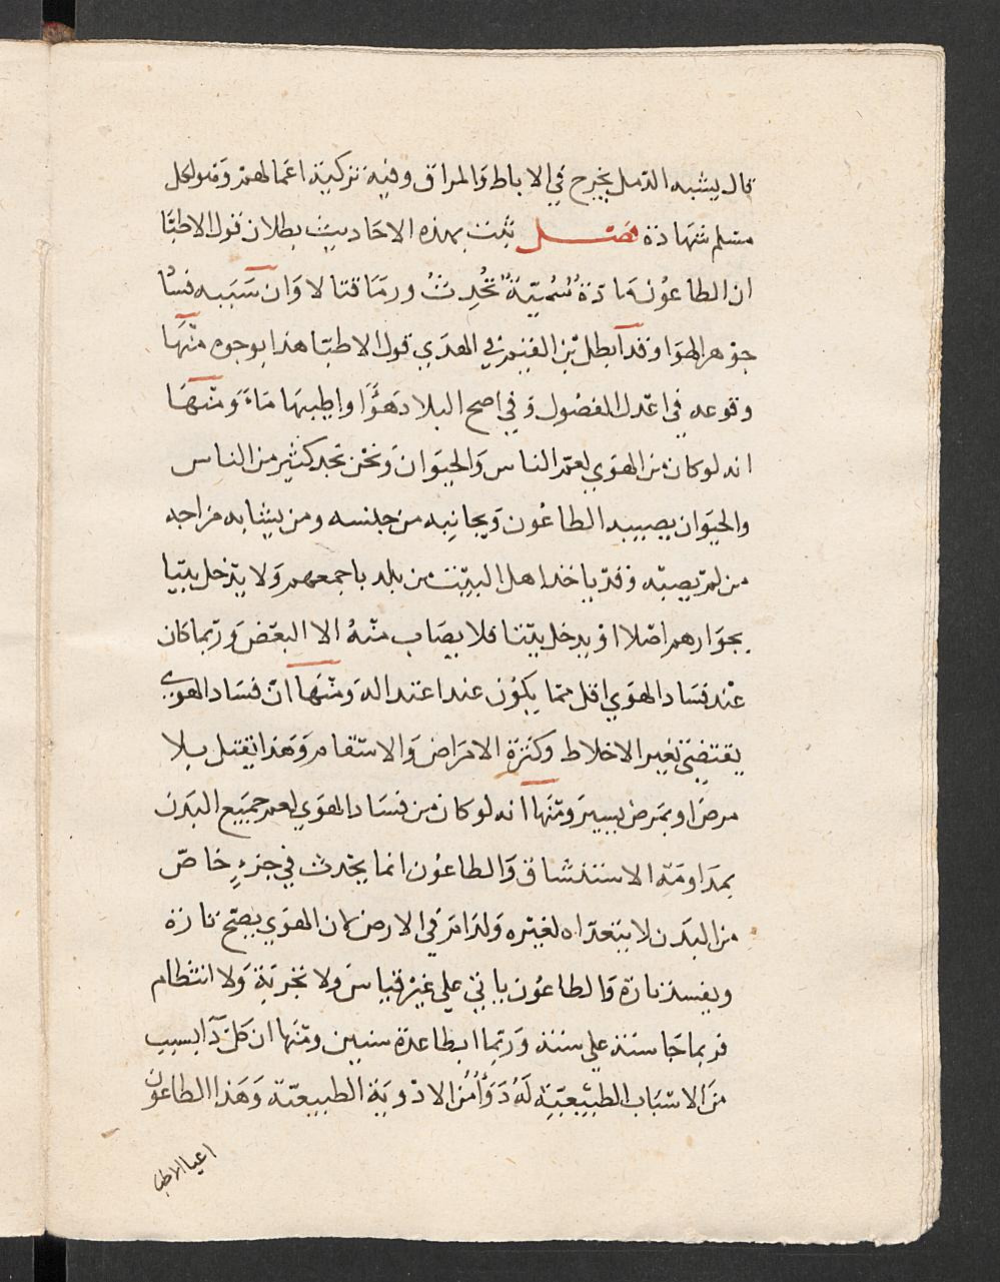 قال يشبه الدمل يخرج في الاباط والمراق وفيه تزكية اعمالهم وهو لكل
مسلم شهادة فصل ثبت بهذه الاحاديث بطلان قول الاطبا
ان الطاعون مادة سُمِّيّةٌ تُحْدِثُ ورما قتالا وان سببه فساد
جوهر الهوا وقد ابطل بن القيم في الهدي قول الاطبا هذا بوجوه منها
وقوعه في اعدل الفصول وفي اصح البلاد هَوَٓاً واطيبها مَاءً ومنها
انه لو كان من الهوي لعم الناس والحيوان ونحن نجد كثير من الناس
والحيوان يصيبه الطاعون وبجانبه من جنسه ومن يشابه مزاجه
من لم يصبه وقد ياخذ اهل البيت من بلد باجمعهم ولا يدخل بيتا
بجوارهم اصلا او يدخل بيتنا فلا يصاب منهُ الا البعض وربما كان
عند فساد الهوي اقل مما يكون عند اعتداله ومنها ان فساد الهوي
يقتضي تغير الاخلاط وكثرة الامراض والاسقام وهذا يقتل بلا
مرض او بمرض يسير ومنها انه لو كان من فساد الهوي لعم جميع البدن
بمداومة الاستنشاق والطاعون انما يحدث في جزءٍ خاص
من البدن لا يتعداه لغيره ولدام في الارض لان الهوي يصح تارة
ويفسد تارة والطاعون ياتي علي غير قياس ولا تجربة ولا انتظام
فربما جا سنة علي سنة وربما ابطا عدة سنين ومنها ان كل دآ بسبب
من الاسباب الطبيعية لَهُ دَوَآٌ من الادوية الطبيعية وهذا الطاعون
اعيا الاطبا